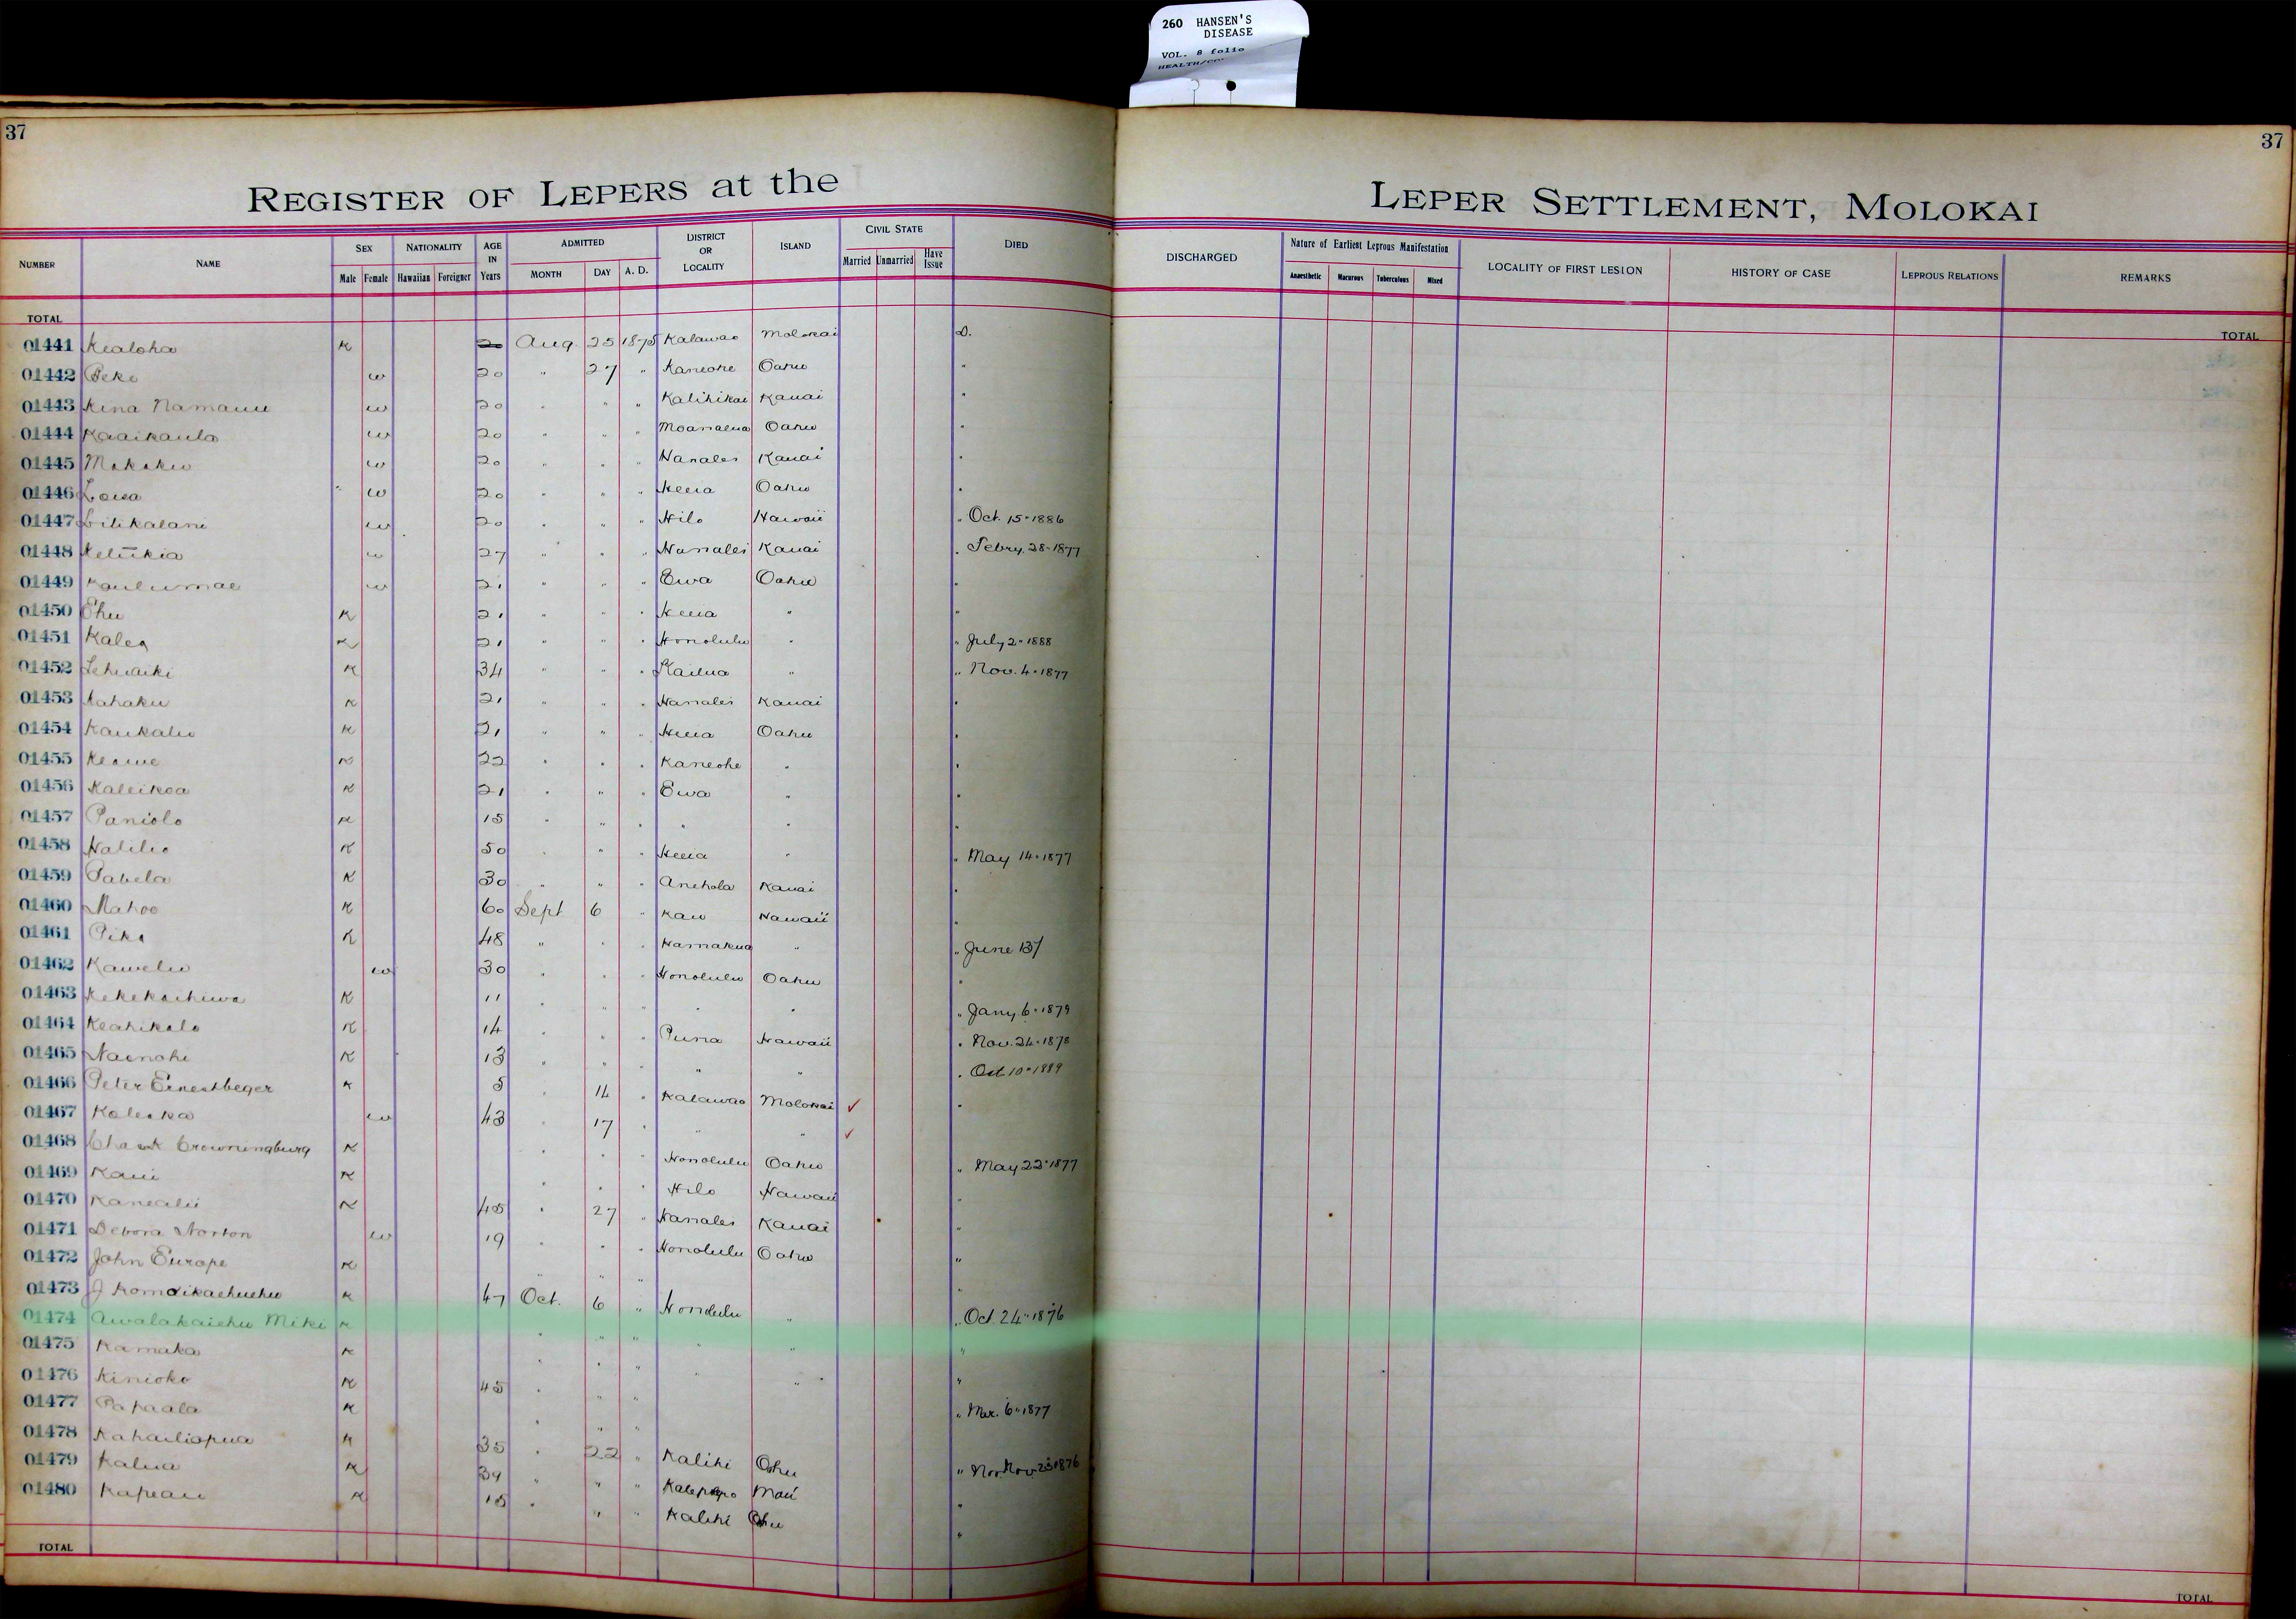 260 HANSEN'S
DISEASE
VOL. 8 folio
37
37
REGISTER OF LEPERS at the LEPER SETTLEMENT, MOLOKAI
NUMBER NAME SEX Male Female NATIONALITY Hawaiian Foreigner AGE IN Years ADMITTED MONTH DAY A. D. DISTRICT OR LOCALITY ISLAND CIVIL STATE Married Unmarried Have Issue DIED DISCHARGED Nature of Earliest Leprous Manifestation Anaesthetic Macurous Tuberculous Mixed LOCALITY OF FIRST LESION HISTORY OF CASE LEPROUS RELATIONS REMARKS
TOTAL TOTAL
01441 Kealoha K 20 Aug. 25 1875 Kalawao Molokai D.
01442 Peke w 20 " 27 " Kaneohe Oahu "
01443 Kina Namauu w 20 " " " Kalihikai Kauai "
01444 Kaaikaula w 20 " " " Moanalua Oahu "
01445 Mokoku w 20 " " " Hanalei Kauai "
01446 Loisa w 20 " " " Heeia Oahu "
01447 Lilikalani w 20 " " " Hilo Hawaii " Oct. 15-1886
01448 Keliikia w 27 " " " Hanalei Kauai " Febry. 28-1877
01449 Kaulumae w 21 " " " Ewa Oahu "
01450 Ehu K 21 " " " Heeia " "
01451 Kalea K 21 " " " Honolulu " " July 2-1888
01452 Lehuaiki K 34 " " " Kailua " " Nov. 4-1877
01453 Kahaku K 21 " " " Hanalei Kauai "
01454 Kaukaliu K 21 " " " Heeia Oahu "
01455 Keawe K 22 " " " Kaneohe " "
01456 Kaleikoa K 21 " " " Ewa " "
01457 Paniolo K 15 " " " " " "
01458 Halilio K 50 " " " Heeia " " May 14-1877
01459 Pabela K 30 " " " Anehola Kauai "
01460 Mahoe K 60 Sept 6 " Kau Hawaii "
01461 Piko K 48 " " " Hamakua " " June 137
01462 Kawelu w 30 " " " Honolulu Oahu "
01463 Kekekachiwa K 11 " " " " " " Jany. 6-1879
01464 Keahikalo K 14 " " " Puna Hawaii " Nov. 24-1878
01465 Nainohi K 13 " " " " " " Oct 10-1889
01466 Peter Ernestbeger K 5 " 14 " Kalawao Molokai ✓ "
01467 Kaleka w 43 " 17 " " " ✓
01468 Crowningburg K " " " Honolulu Oahu " May 22-1877
01469 Kaui K " " " Hilo Hawaii "
01470 Kanealii K 45 " 27 " Hanalei Kauai "
01471 Debora Norton w 19 " " " Honolulu Oahu "
01472 John Europe K " " " "
01473 J Komoikaehuehu K 47 Oct. 6 " Honolulu " " Oct. 24-1876
01474 Awalakaiehu Miki K " " " " " "
01475 Kamaka K " " " " " "
01476 Kinioko K 45 " " " "
01477 Papaala K " " " " Mar. 6-1877
01478 Kahailiopua K 35 " 22 " Kalihi Oahu " Nov. 23-1876
01479 Kalua K 39 " " " Kalepopo Maui "
01480 Kapeau K 15 " " " Kalihi Oahu "
TOTAL TOTAL